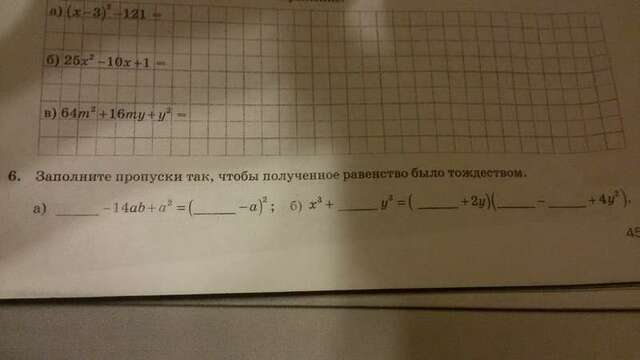 а) (x−3)² −121 =
б) 25x² −10x+1 =
в) 64m² +16my+y² =
6. Заполните пропуски так, чтобы полученное равенство было тождеством.
а) _____ −14ab+a² = (_____ −a)² ; б) x³ + _____ y³ = ( _____ +2y)(_____ − _____ +4y²).
45